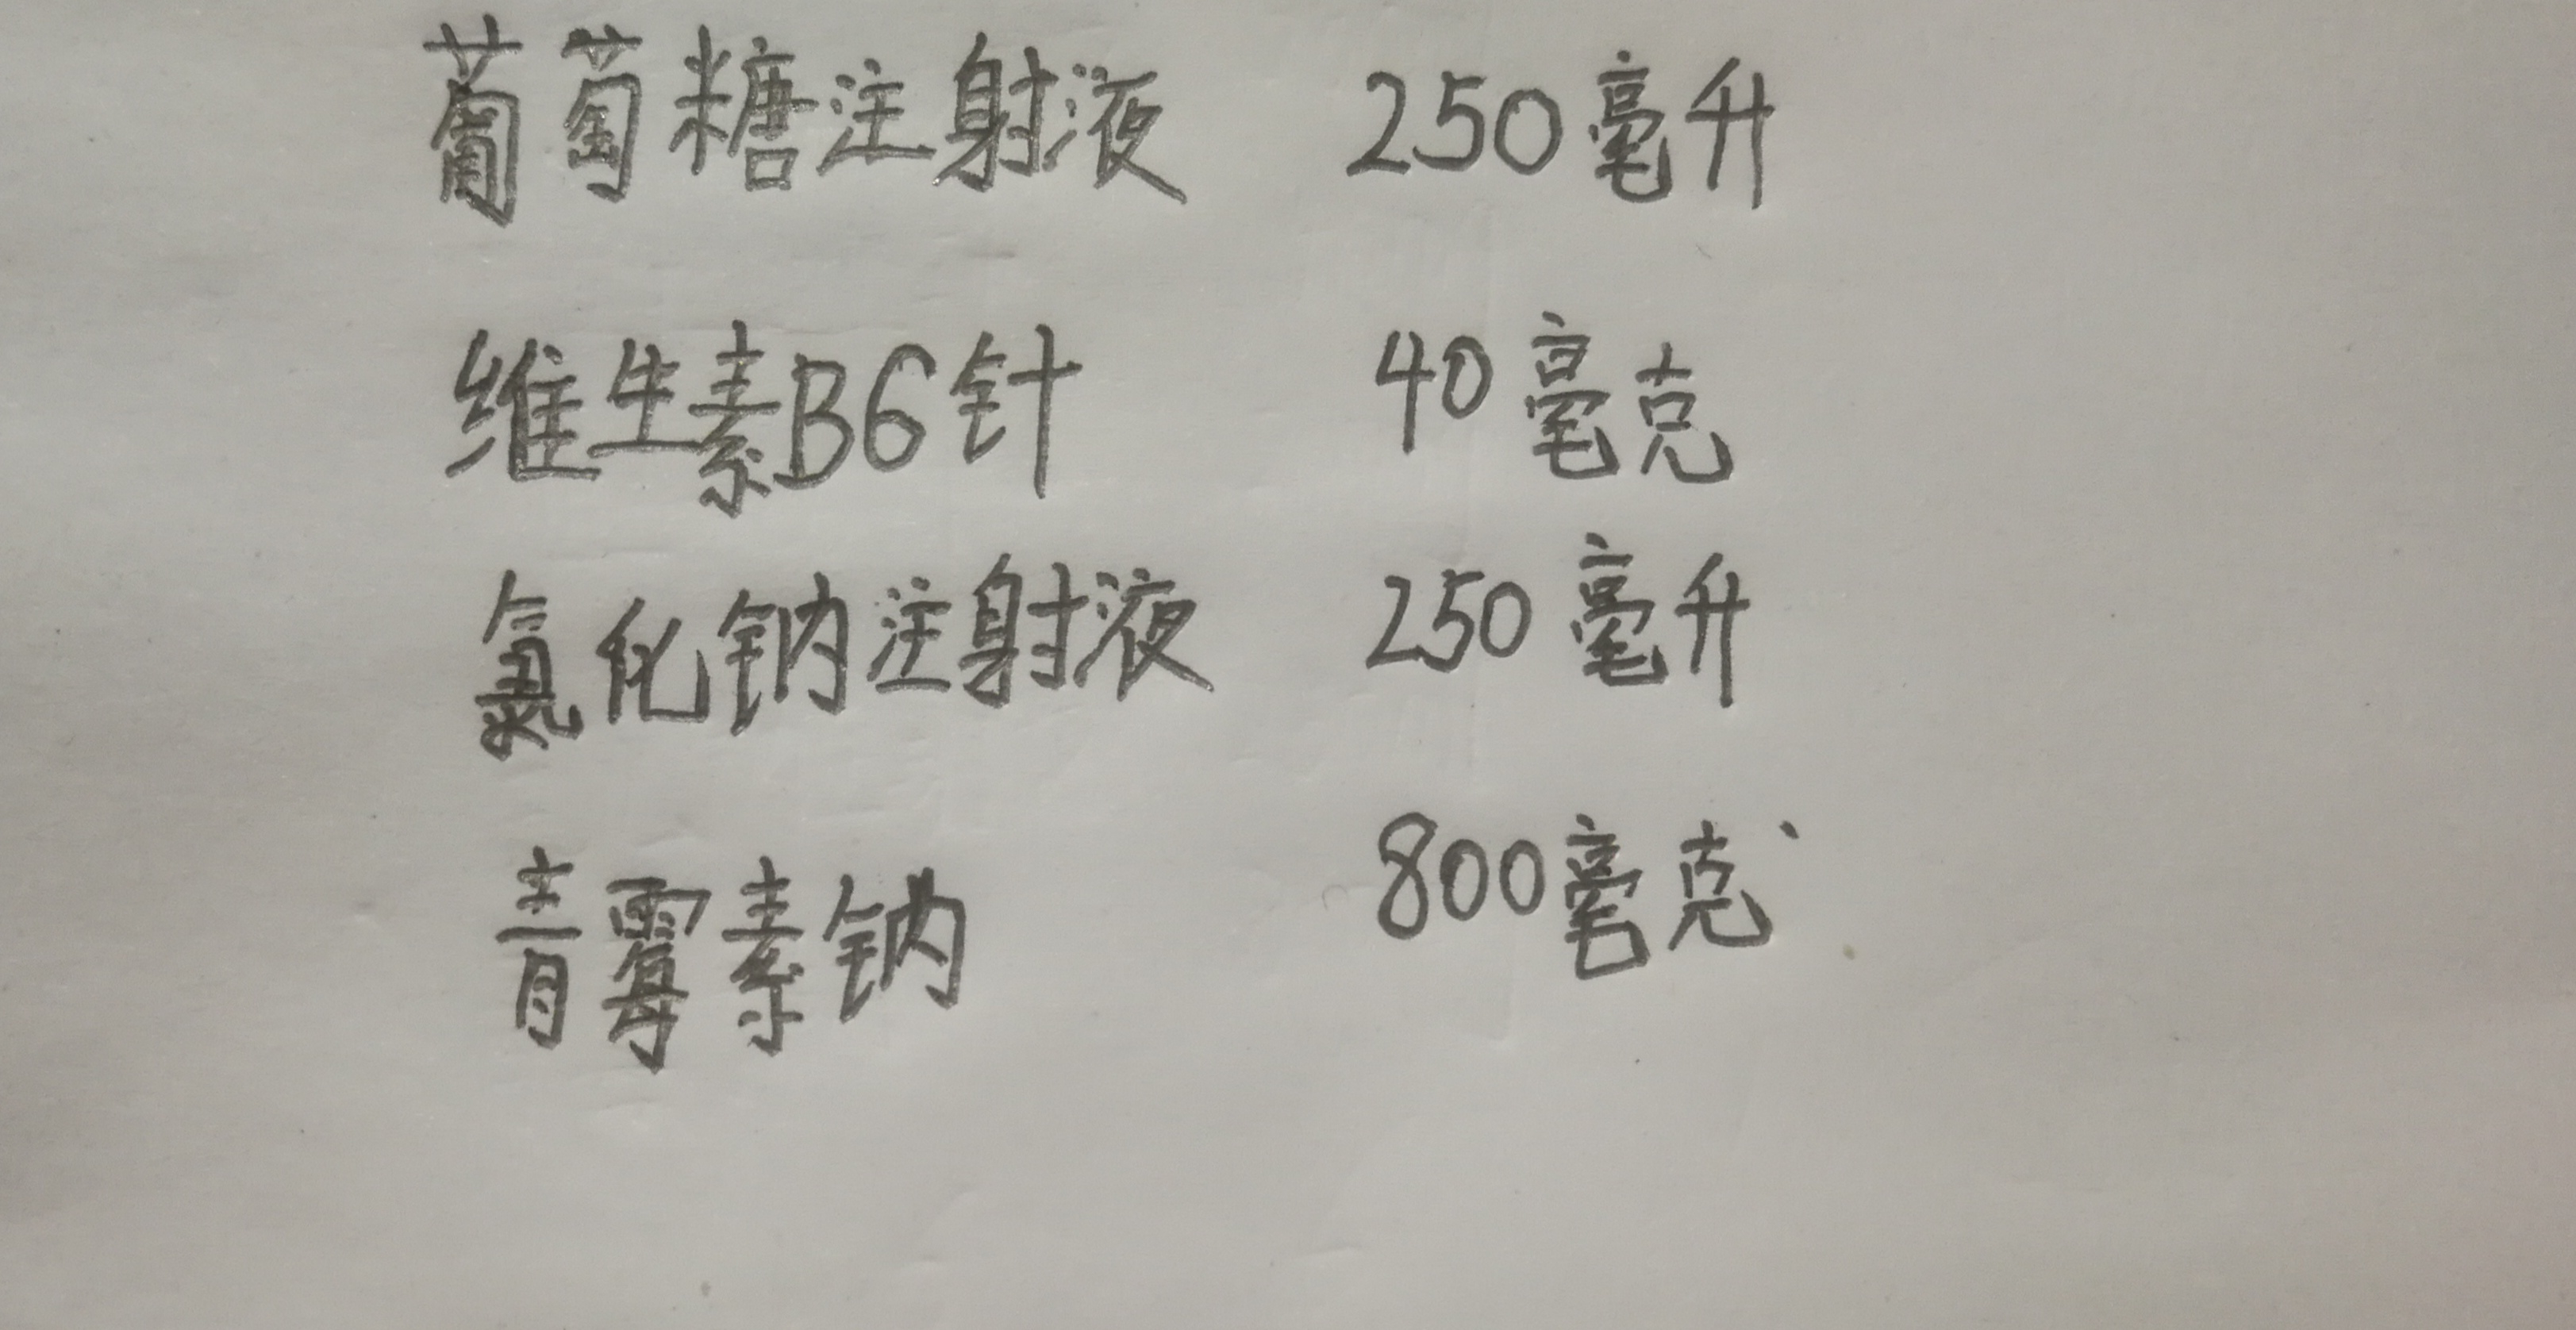 葡萄糖注射液 250毫升
维生素B6针 40毫克
氯化钠注射液 250毫升
青霉素钠 800毫克